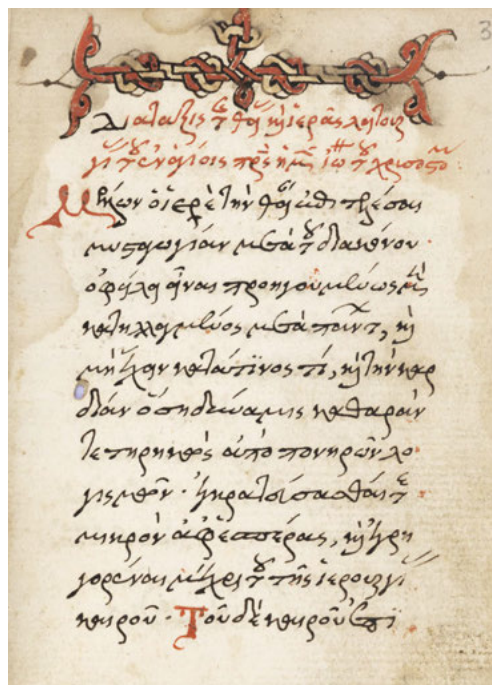 3
Διάταξις τῆς θείας καὶ ἱερᾶς λειτουρ
γίας τοῦ ἐν ἁγίοις πατρὸς ἡμῶν Ἰωάννου τοῦ Χρυσοστόμου
Μέλλων ὁ ἱερεὺς τὴν θείαν ἐπιτελέσαι
μυσταγωγίαν μετὰ τοῦ διακόνου·
ὀφείλει εἶναι προηγουμένως μὲν
κατηλλαγμένος μετὰ πάντων, καὶ
μὴ ἔχειν κατά τινος τί, καὶ τὴν καρ
δίαν ὅση δύναμις καθαρὰν
τετηρηκὼς ἀπὸ πονηρῶν λο
γισμῶν· ἐγκρατεύσασθαί τε
μικρὸν ἀφ' ἑσπέρας, καὶ ἐγρη
γορέναι μέχρι τοῦ τῆς ἱερουργίας
καιροῦ· Τοῦ δὲ καιροῦ ἐπι